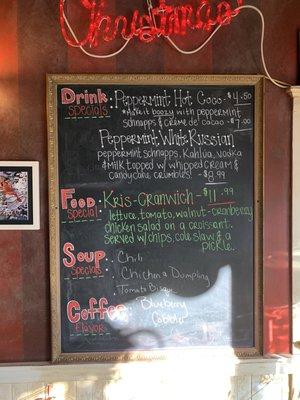 Christmas
Drink Specials
Peppermint Hot Coco - $4.50
*Make it boozy with peppermint
schnapps & creme de cacao - $7.00
Peppermint White Russian
peppermint schnapps, Kahlua, vodka
& milk topped w/ whipped cream &
candycane crumbles! - $8.99
Food Special
Kris-Cranwich - $11.99
lettuce, tomato, walnut-cranberry
chicken salad on a croissant.
Served w/ chips, cole slaw & a
pickle.
Soup Specials
Chili
Chicken & Dumpling
Tomato Bisque
Coffee Flavor
Blueberry
Cobbler